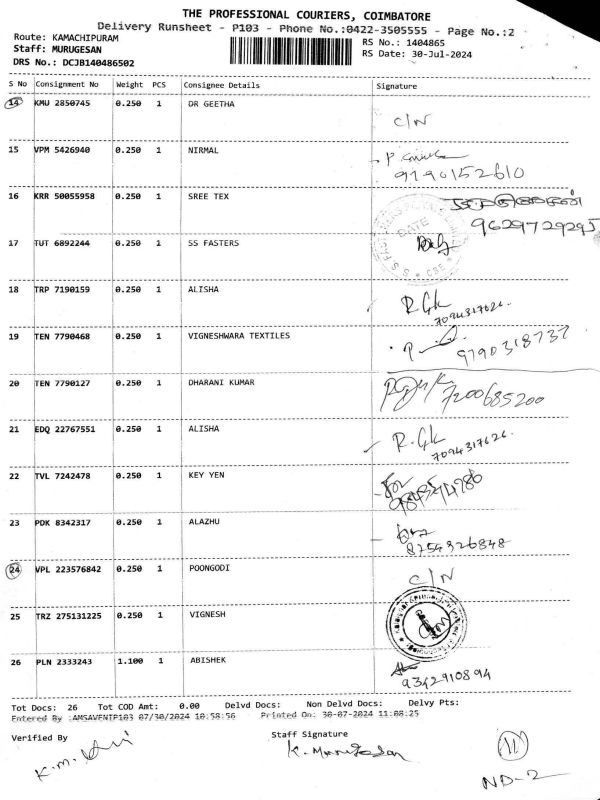 THE PROFESSIONAL COURIERS, COIMBATORE
Delivery Runsheet - P103 - Phone No.:0422-3505555 - Page No.:2
Route: KAMACHIPURAM
Staff: MURUGESAN
DRS No.: DCJB140486502
RS No.: 1404865
RS Date: 30-Jul-2024
S No Consignment No Weight PCS Consignee Details Signature
14 KMU 2850745 0.250 1 DR GEETHA C/N
15 VPM 5426940 0.250 1 NIRMAL
9190152610
16 KRR 50055958 0.250 1 SREE TEX
9629729295
17 TUT 6892244 0.250 1 SS FASTERS
DATE
CBE
18 TRP 7190159 0.250 1 ALISHA R.Gk
7094317626.
19 TEN 7790468 0.250 1 VIGNESHWARA TEXTILES
9790318737
20 TEN 7790127 0.250 1 DHARANI KUMAR
7200685200
21 EDQ 22767551 0.250 1 ALISHA R.Gk
7094317626.
22 TVL 7242478 0.250 1 KEY YEN
23 PDK 8342317 0.250 1 ALAZHU
8754926848
24 VPL 223576842 0.250 1 POONGODI C/N
25 TRZ 275131225 0.250 1 VIGNESH
26 PLN 2333243 1.100 1 ABISHEK
9342910894
Tot Docs: 26 Tot COD Amt: 0.00 Delvd Docs: Non Delvd Docs: Delvy Pts:
Entered By :AMSAVENIP103 07/30/2024 10:58:56 Printed On: 30-07-2024 11:08:25
Verified By Staff Signature
K. Murugesan
11
ND-2